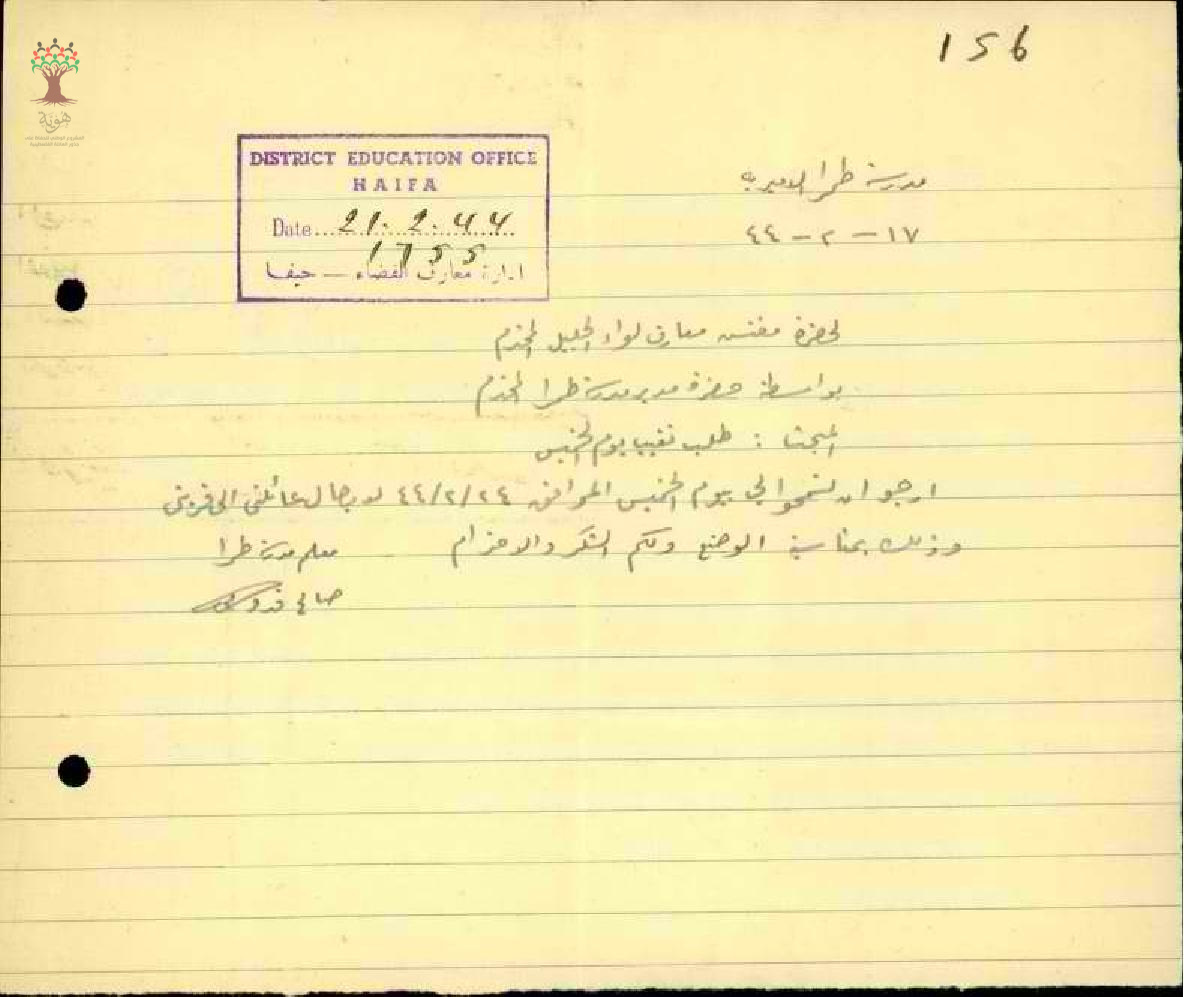 156
هوية
DISTRICT EDUCATION OFFICE
HAIFA
Date 21.2.44
1755
ادارة معارف القضاء — حيفا
مدرسة طمرا الاميرية
١٧ – ٢ – ٤٤
لحضرة مفتش معارف لواء الجليل المحترم
بواسطة حضرة مدير مدرسة طمرا المحترم
المبحث : طلب تغيب يوم الخميس
ارجو ان تسمحوا لي بيوم الخميس الموافق ٤٤/٢/٢٤ لايصال عائلتي الى قريتي
وذلك بمناسبة الوضع ولكم الشكر والاحترام
معلم مدرسة طمرا
صالح